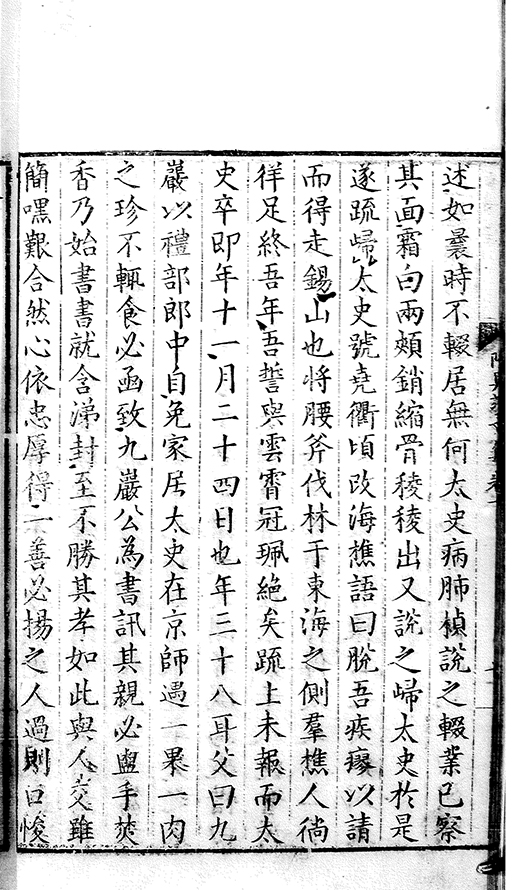 述如曩時不輟居無何太史病肺楨説之輟業已察
其面霜白兩頰銷縮骨稜稜出又説之歸太史於是
遂疏歸太史號堯衢頃改海樵語曰脫吾疾瘳以請
而得走錫山也将腰斧伐林于東海之側羣樵人徜
徉足終吾年吾誓與雲霄冠珮絶矣䟽上未報而太
史卒即年十一月二十四日也年三十八耳父曰九
巖以禮部郎中自免家居太史在京師遇一果一肉
之珍不輒食必函致九巖公為書訊其親必盥手焚
香乃始書書就含涕封至不勝其孝如此與人交雖
簡嘿艱合然心依忠厚得一善必揚之人過則口悛